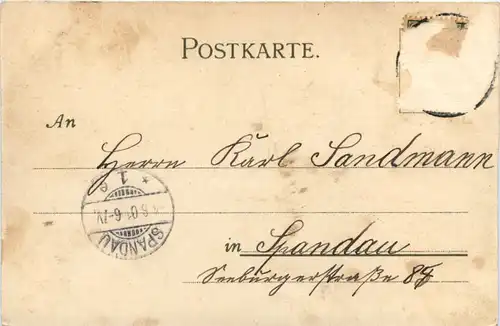 POSTKARTE.
An
Herrn Karl Sandmann
in Spandau
Seeburgerstraße
SPANDAU
* 1 e